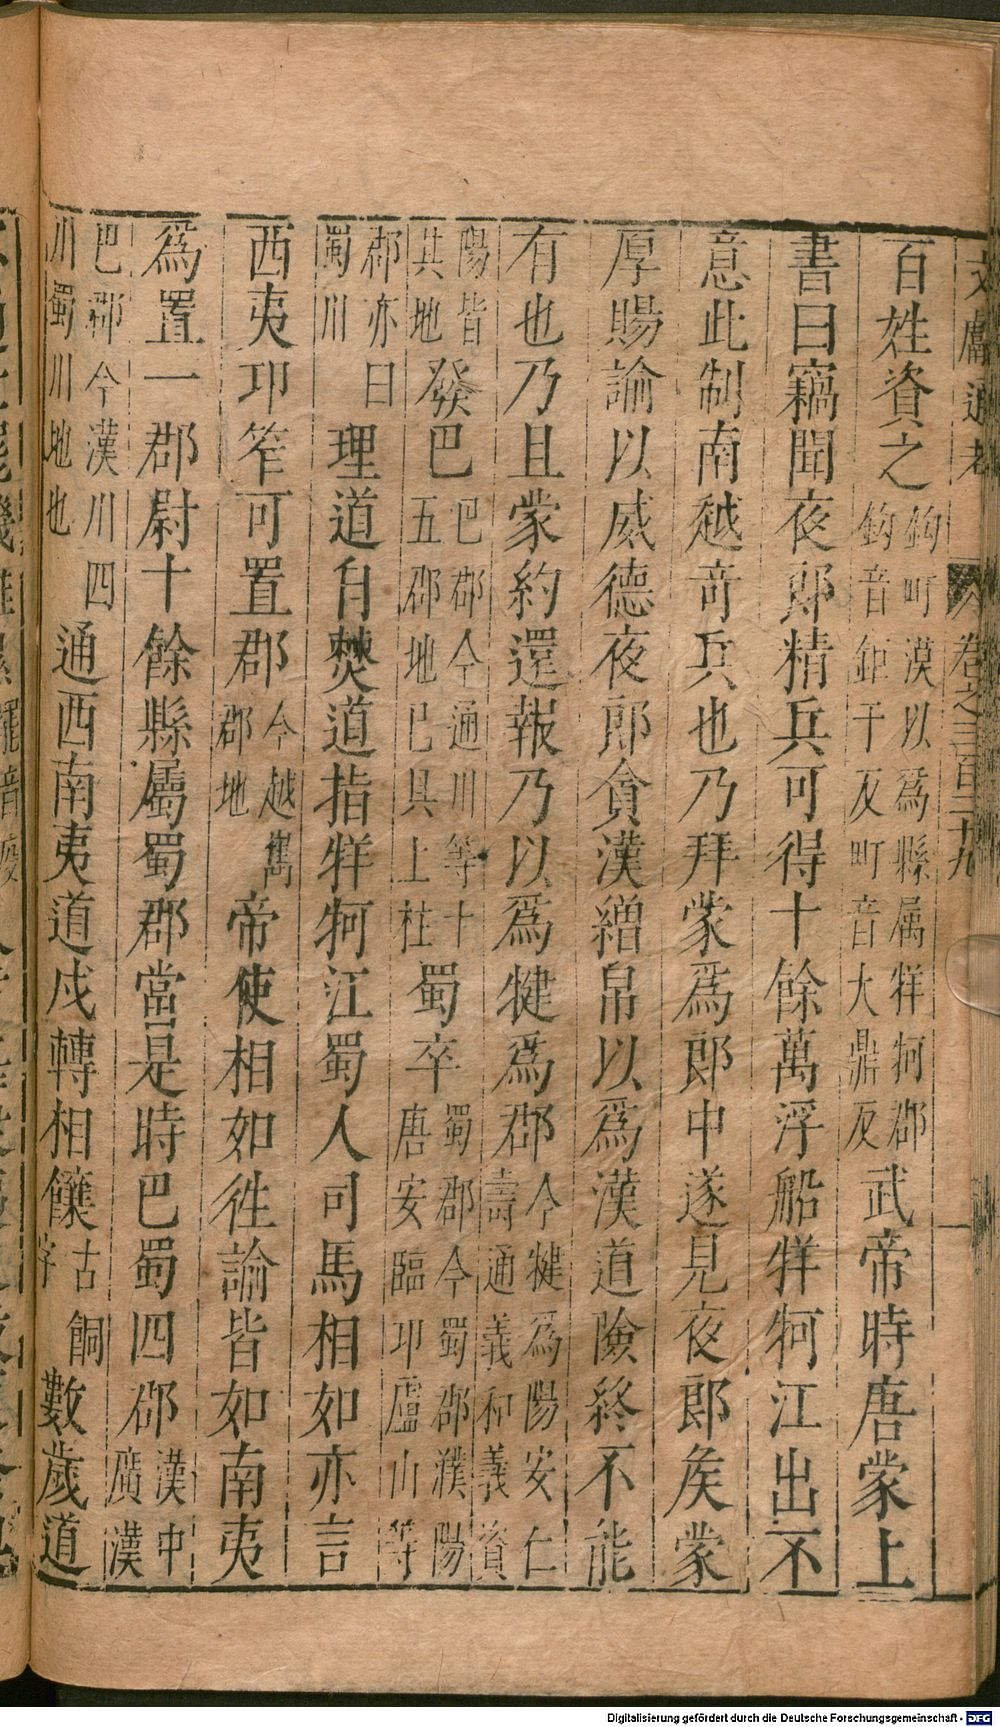 文獻通考 卷之三百二十九
百姓資之鉤町漢以爲縣属牂牁郡鉤音鉅于反町音大鼎反武帝時唐蒙上
書曰竊聞夜郎精兵可得十餘萬浮船牂牁江出不
意此制南越奇兵也乃拜蒙爲郎中遂見夜郎矦蒙
厚賜諭以威德夜郎貪漢繒帛以爲漢道險終不能
有也乃且蒙約還報乃以爲犍爲郡今犍爲陽安仁壽通義和義資
陽皆其地發巴巴郡今通川等十五郡地已具上柱蜀卒蜀郡今蜀郡濮陽唐安臨邛盧山等
郡亦曰蜀川理道自僰道指牂牁江蜀人司馬相如亦言
西夷邛筰可置郡今越巂郡地帝使相如徃諭皆如南夷
爲置一郡尉十餘縣屬蜀郡當是時巴蜀四郡漢中廣漢
巴郡今漢川四川蜀川地也通西南夷道戍轉相饟古餉字數歲道
Digitalisierung gefördert durch die Deutsche Forschungsgemeinschaft - DFG